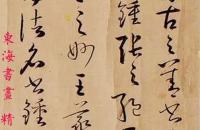 古之善書
鍾張之絕
之妙王羲
諸名書鍾
東海書畫精